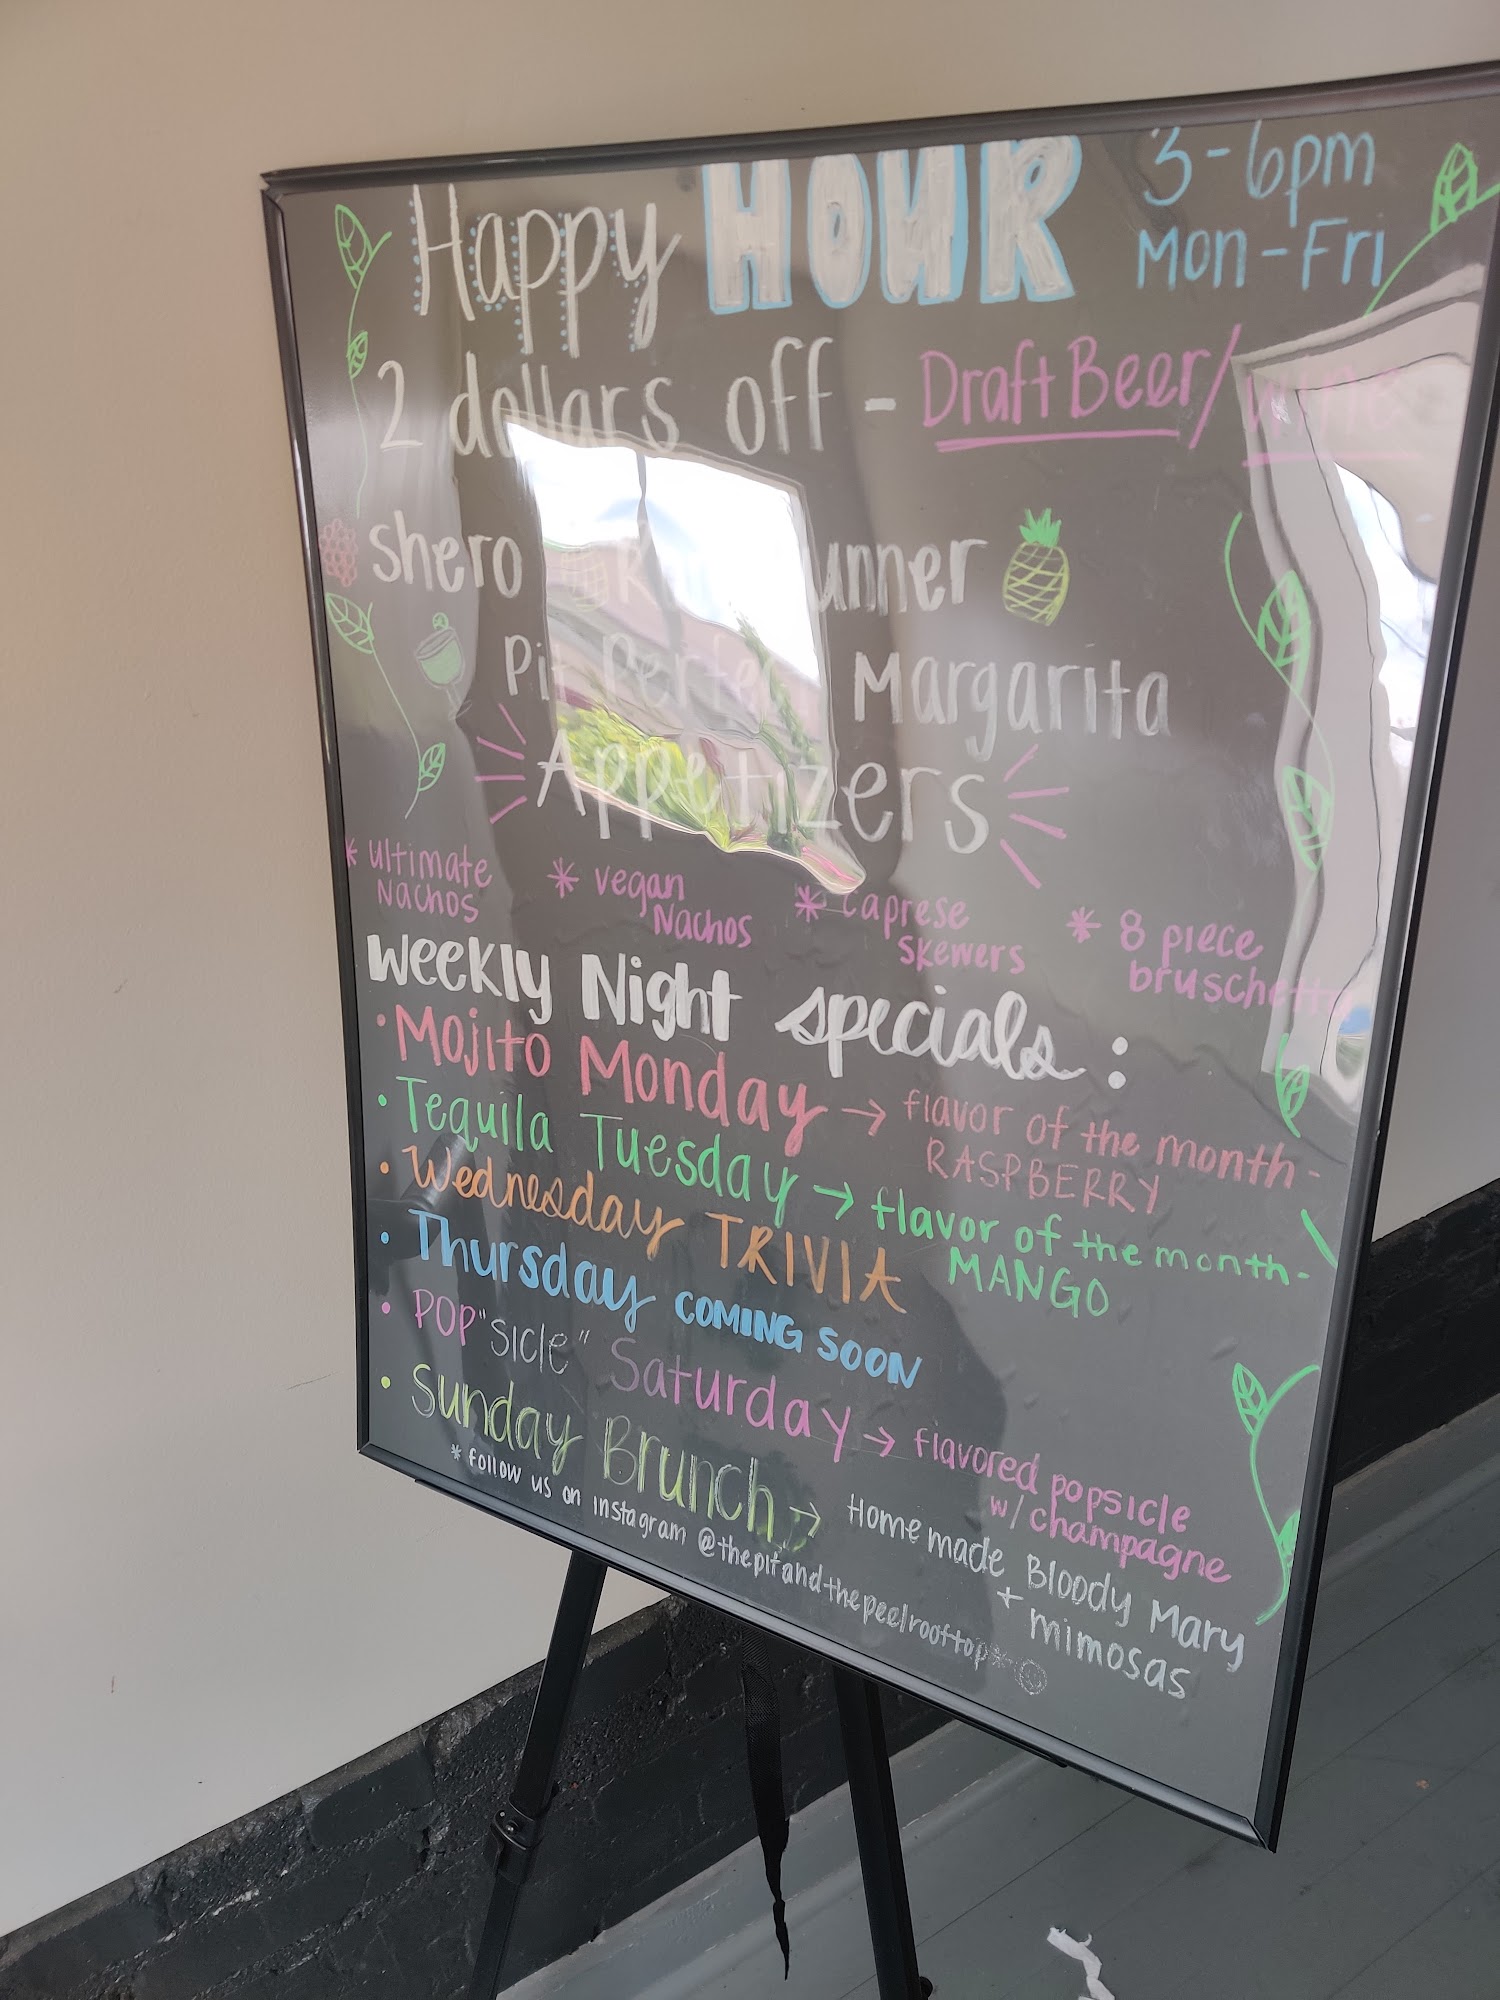 Happy HOUR 3-6pm
Mon-Fri
2 dollars off - Draft Beer/wine
shero Rum Runner
Pit Perfect Margarita
Appetizers
* ultimate Nachos
* vegan Nachos
* caprese skewers
* 8 piece bruschetta
Weekly Night specials:
• Mojito Monday → flavor of the month-
RASPBERRY
• Tequila Tuesday → flavor of the month-
MANGO
• Wednesday TRIVIA
• Thursday COMING SOON
• POP"SICLE" Saturday → flavored popsicle
w/ champagne
• Sunday Brunch → Homemade Bloody Mary
+ mimosas
* follow us on instagram @thepitandthepeelrooftop*